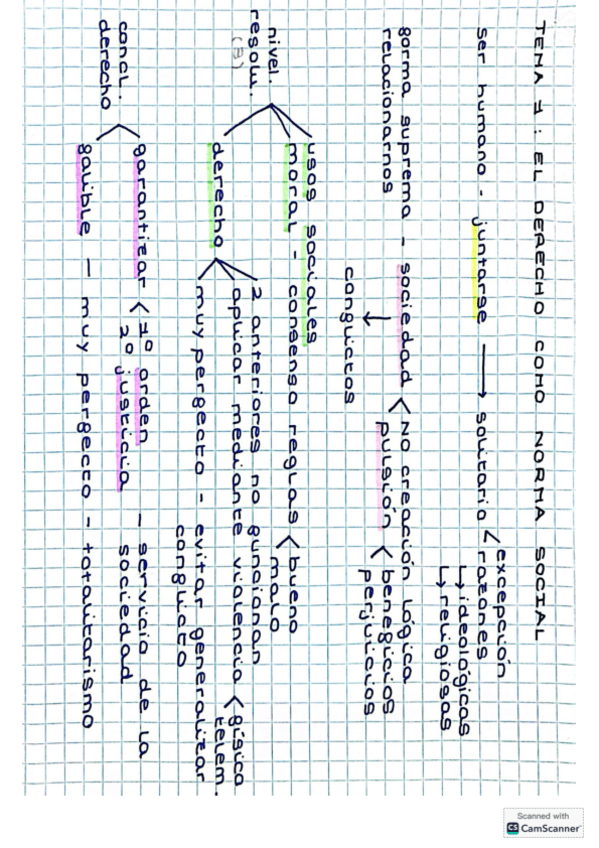 TEMA 1: EL DERECHO COMO NORMA SOCIAL
ser humano - juntarse → solitario < excepción
razones
↳ ideológicas
↳ religiosas
forma suprema - sociedad < NO creación lógica
relacionarnos
pulsión < beneficios
perjuicios
↓
conflictos
nivel.
resolu.
(3)
usos sociales
moral - consenso reglas < bueno
malo
derecho
2 anteriores no funcionan
aplicar mediante violencia < física
telem.
muy perfecto - evitar generalizar
conflicto
concl.
derecho
garantizar < 1º orden - servicio de la
2º justicia sociedad
falible — muy perfecto - totalitarismo
Scanned with
CS CamScanner